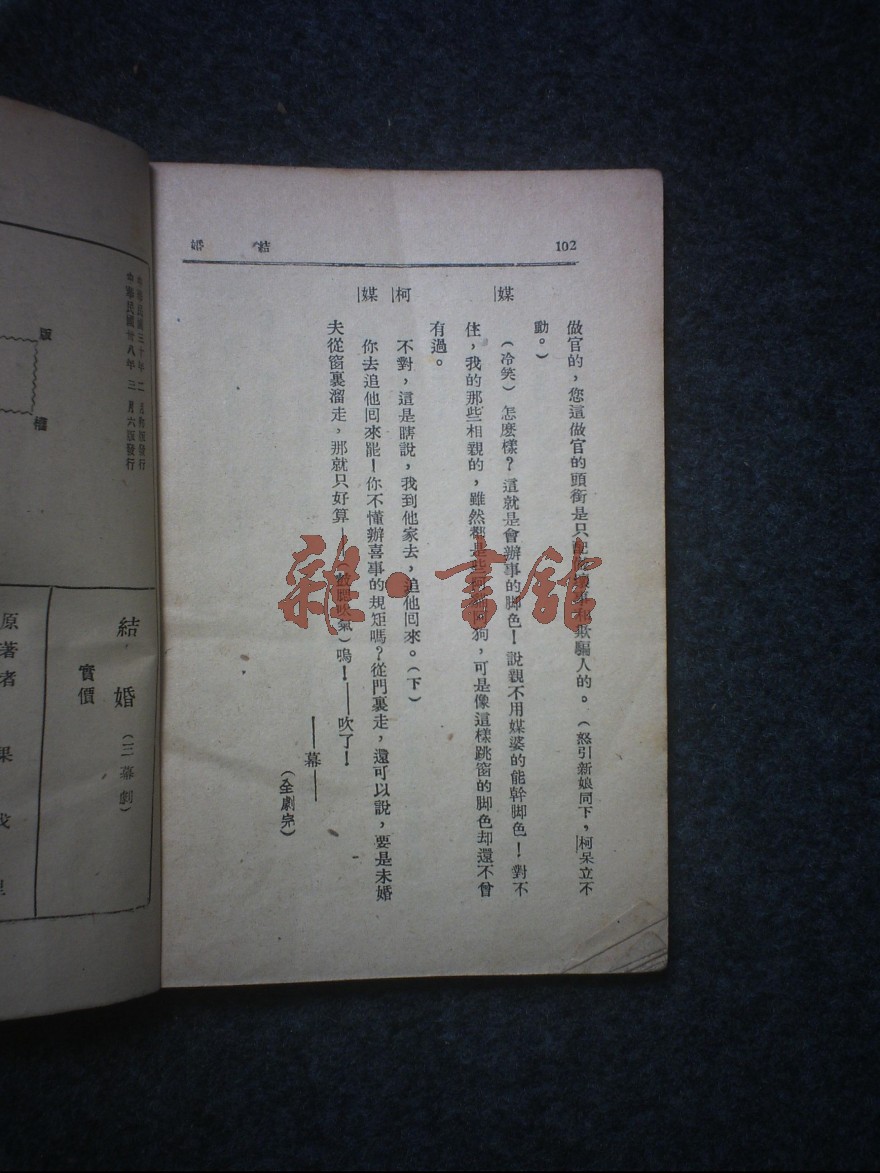 102
結 婚
做官的，您這做官的頭銜是只 騙人的。（怒引新娘同下，柯呆立不
動。）
媒 （冷笑）怎麽樣？這就是會辦事的脚色！說親不用媒婆的能幹脚色！對不
住，我的那些相親的，雖然都是些 狗，可是像這樣跳窗的脚色却還不曾
有過。
柯 不對，這是瞎說，我到他家去，追他回來。（下）
媒 你去追他回來罷！你不懂辦喜事的規矩嗎？從門裏走，還可以說，要是未婚
夫從窗裏溜走，那就只好算——（ 氣）嗚！——吹了！
——幕——
（全劇完）
版
權
中華民國三十年二月初版發行
中華民國廿八年三月六版發行
結婚（三幕劇）
實價
原著者 果戈里
雜·書館